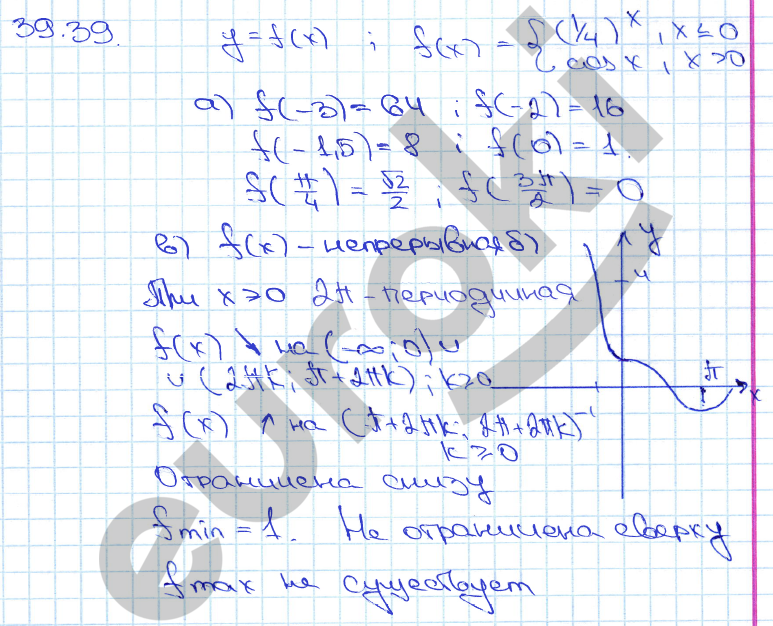 39.39. y = f(x) ; f(x) = { (1/4)^x, x ≤ 0
cos x, x > 0
а) f(-3) = 64 ; f(-2) = 16
f(-1,5) = 8 ; f(0) = 1.
f(π/4) = √2/2 ; f(3π/2) = 0
в) f(x) – непрерывная б)
При x > 0 2π – периодичная
f(x) ↘ на (-∞; 0) ∪
∪ (2πk; π + 2πk) ; k ≥ 0
f(x) ↑ на (π + 2πk; 2π + 2πk)
k ≥ 0
Ограничена снизу
fmin = 1. Не ограничена сверху
fmax не существует
y
4
π
x
-1
euroki